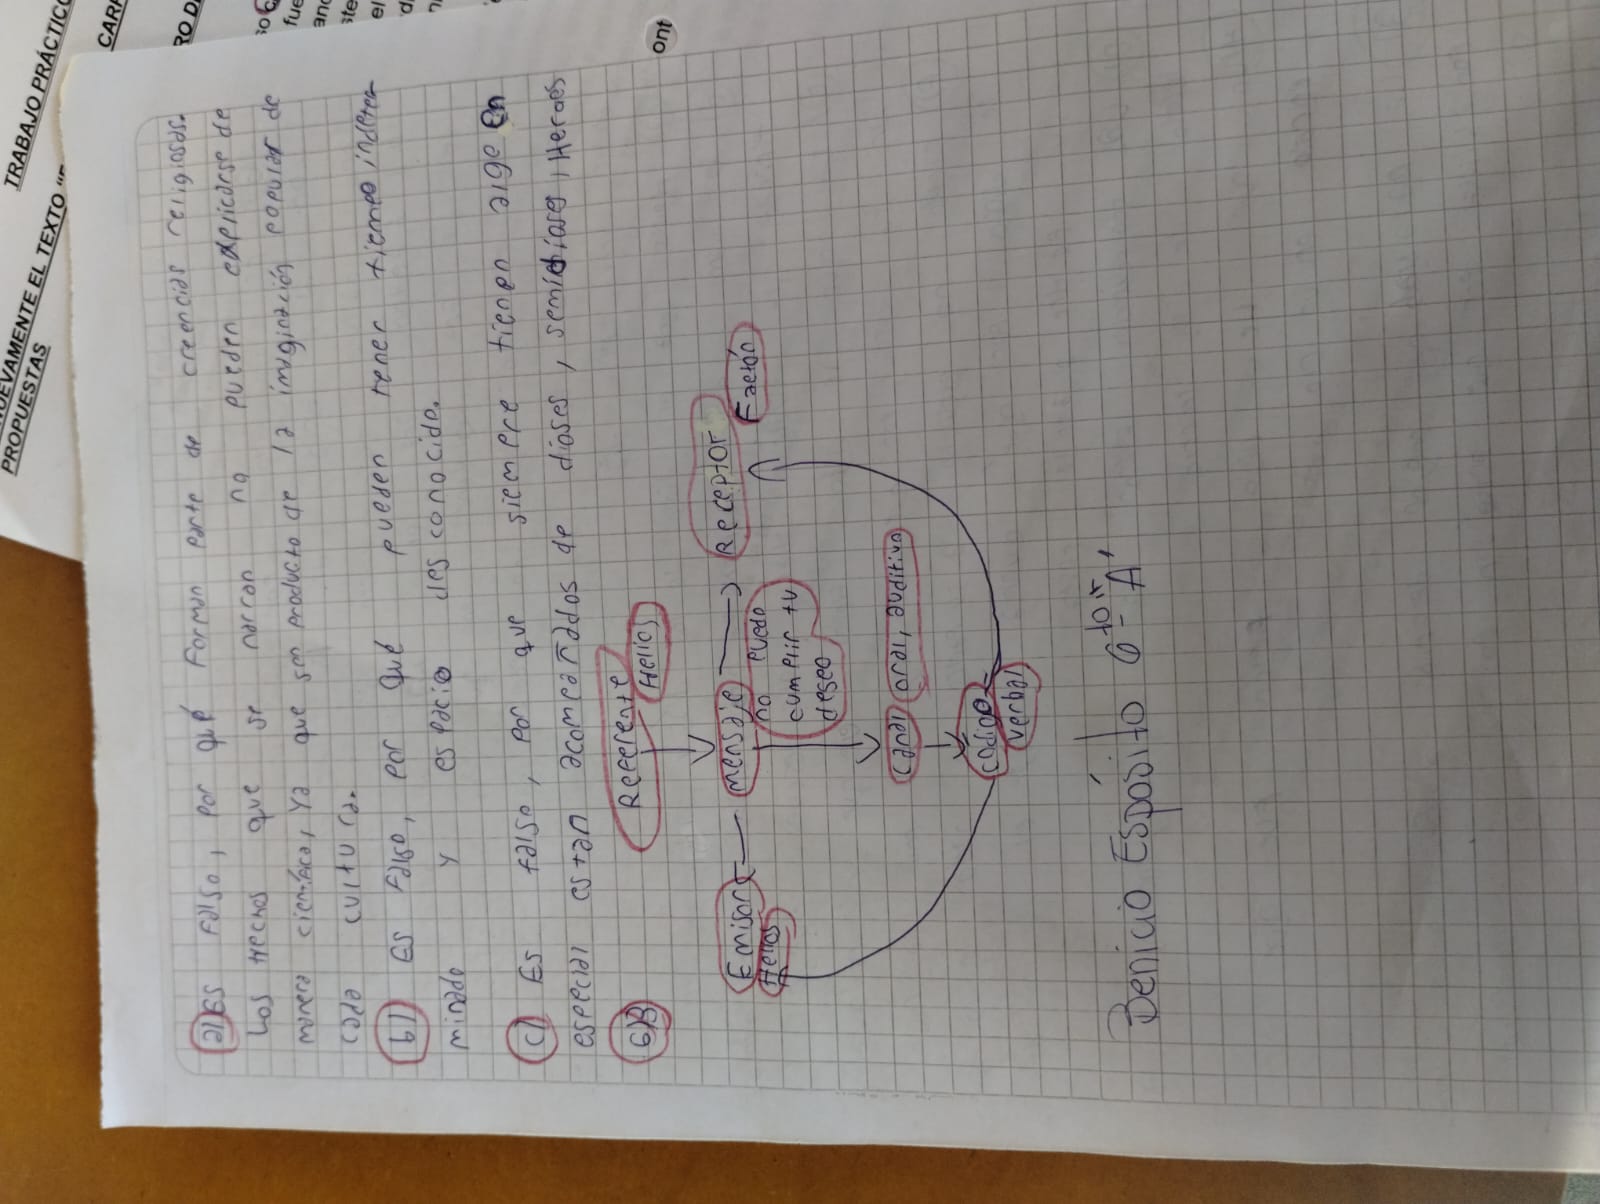 TRABAJO PRÁCTICO
CARP
RO DE
NUEVAMENTE EL TEXTO "
PROPUESTAS
ont
a) Es Falso, por qué Forman parte de creencias religiosas.
Los Hechos que se narran no pueden explicarse de
manera científica, Ya que son producto de la imaginación popular de
cada cultura.
b) Es Falso, por qué pueden tener tiempo indeter
minado y espacio desconocido.
c) Es Falso, por que siempre tienen algo en
especial estan acompañados de dioses, semidioses, Heroes
6)B
Referente
Helios
Emisor
Helios
mensaje
no puedo
cumplir tu
deseo
Receptor
Faetón
canal oral, auditivo
codigo
verbal
Benicio Espósito 6to "A"